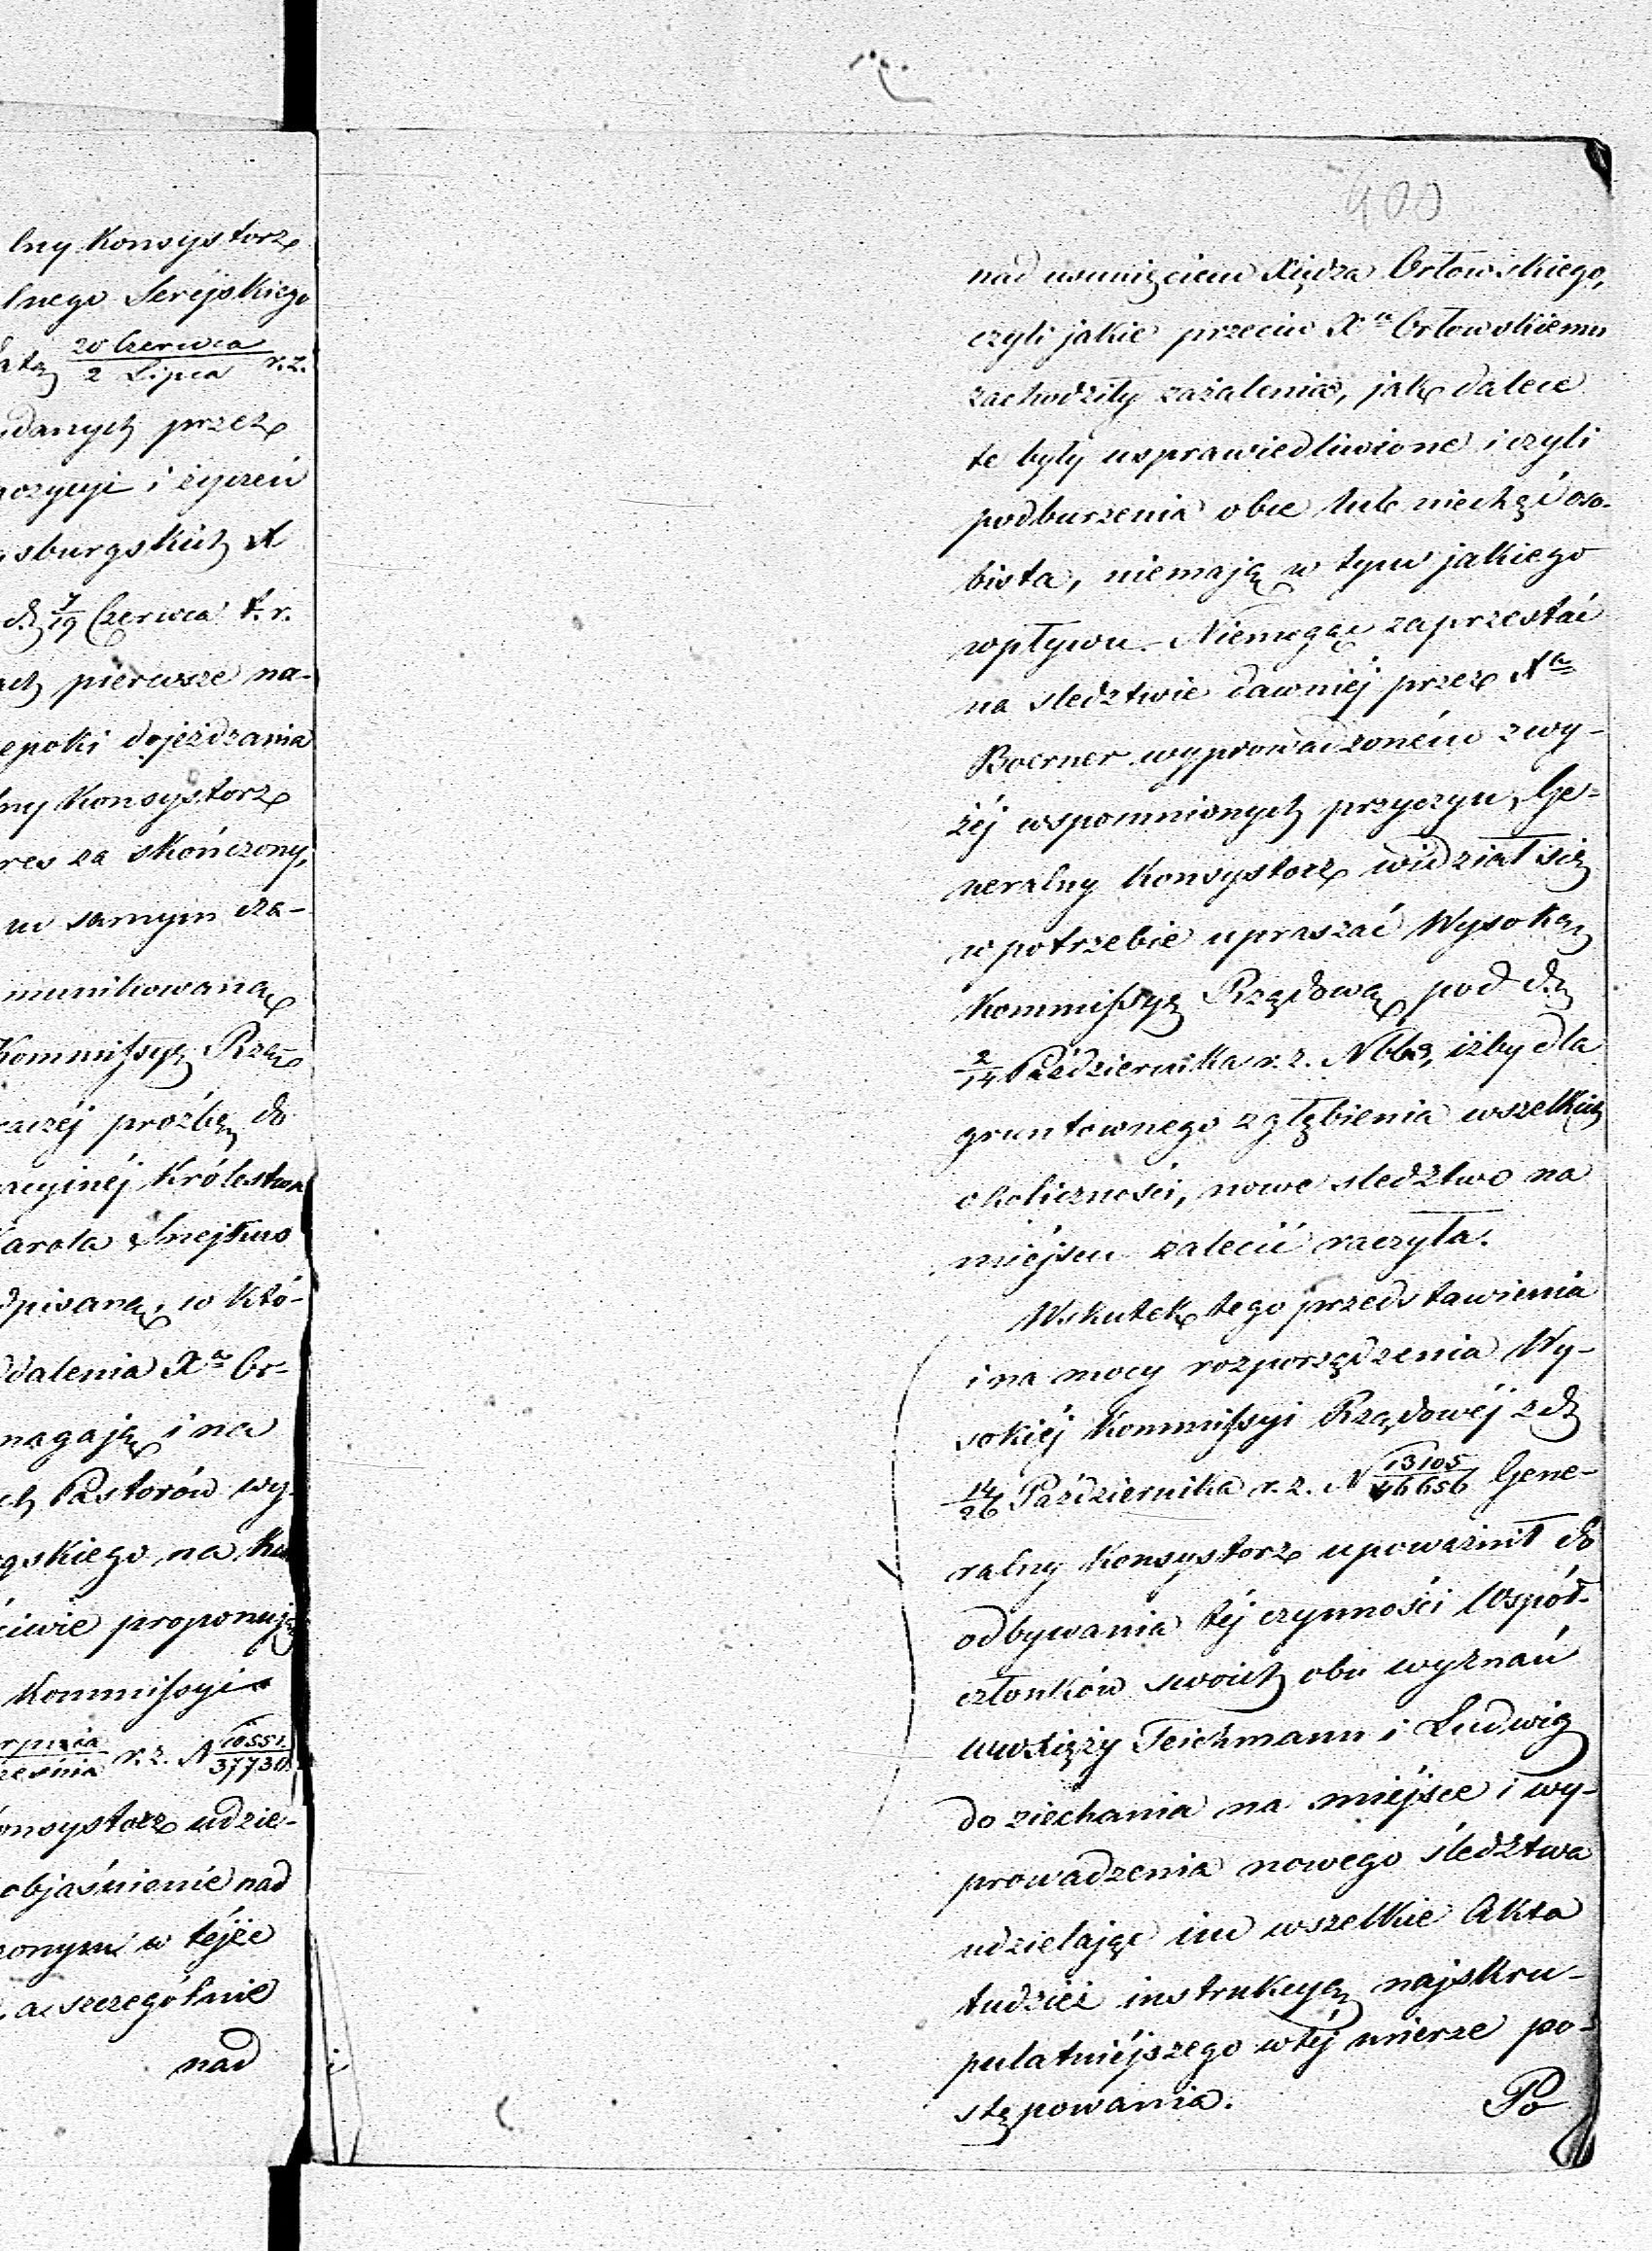 lny Konsystorz
lnego Serejskiego
20 Czerwca
2 Lipca r. z.
danych przez
pozycyi i życzeń
sburgskich X
d. 7/19 Czerwca t. r.
ach pierwsze na-
epoki dojeżdzania
lny Konsystorz
res za skończony,
m samym cza-
munikowaną
Kommissyę Rzą-
raczéj prożbę do
acyjnéj Królestwa
Karola
dpisaną, w któ-
ddalenia Xa Or-
magają i na
ch Pastorów wy-
gskiego, na
ciwie proponują
Kommissyi
rpnia
ześnia r. z. N 10551/37730
onsystorz udzie-
objaśnienie nad
zonym w téjże
a szczególnie
nad
400
nad usunięciem Xiędza Orłowskiego,
czyli jakie przeciw Xu Orłowskiemu
zachodziły zażalenia, jak dalece
te były usprawiedliwione i czyli
podburzenia obce lub niechęć oso-
bista, niemają w tym jakiego
wpływu. – Niemogąc zaprzestać
na sledztwie dawniéj przez Xa
Boerner wyprowadzoném z wy-
żéj wspomnionych przyczyn, Ge-
neralny Konsystorz widział się
w potrzebie upraszać Wysoką
Kommissyę Rządową pod d.
2/14 Października r. z. N 663, iżby dla
gruntownego zgłębienia wszelkich
okoliczności, nowe sledztwo na
miéjscu zalecić raczyła.
Wskutek tego przedstawienia
i na mocy rozporządzenia Wy-
sokiéj Kommissyi Rządowéj z d.
14/26 Października r. z. N 13105/46656 Gene-
ralny Konsystorz upoważnił do
odbywania téj czynności Wspoł-
członków swoich obu wyznań
WW Xięży Teichmann i Ludwig
do ziechania na miéjsce i wy-
prowadzenia nowego śledztwa
udzielając im wszelkie Akta
tudzież instrukcyą najskru-
pulatniéjszego w téj mierze po-
stępowania.
Po